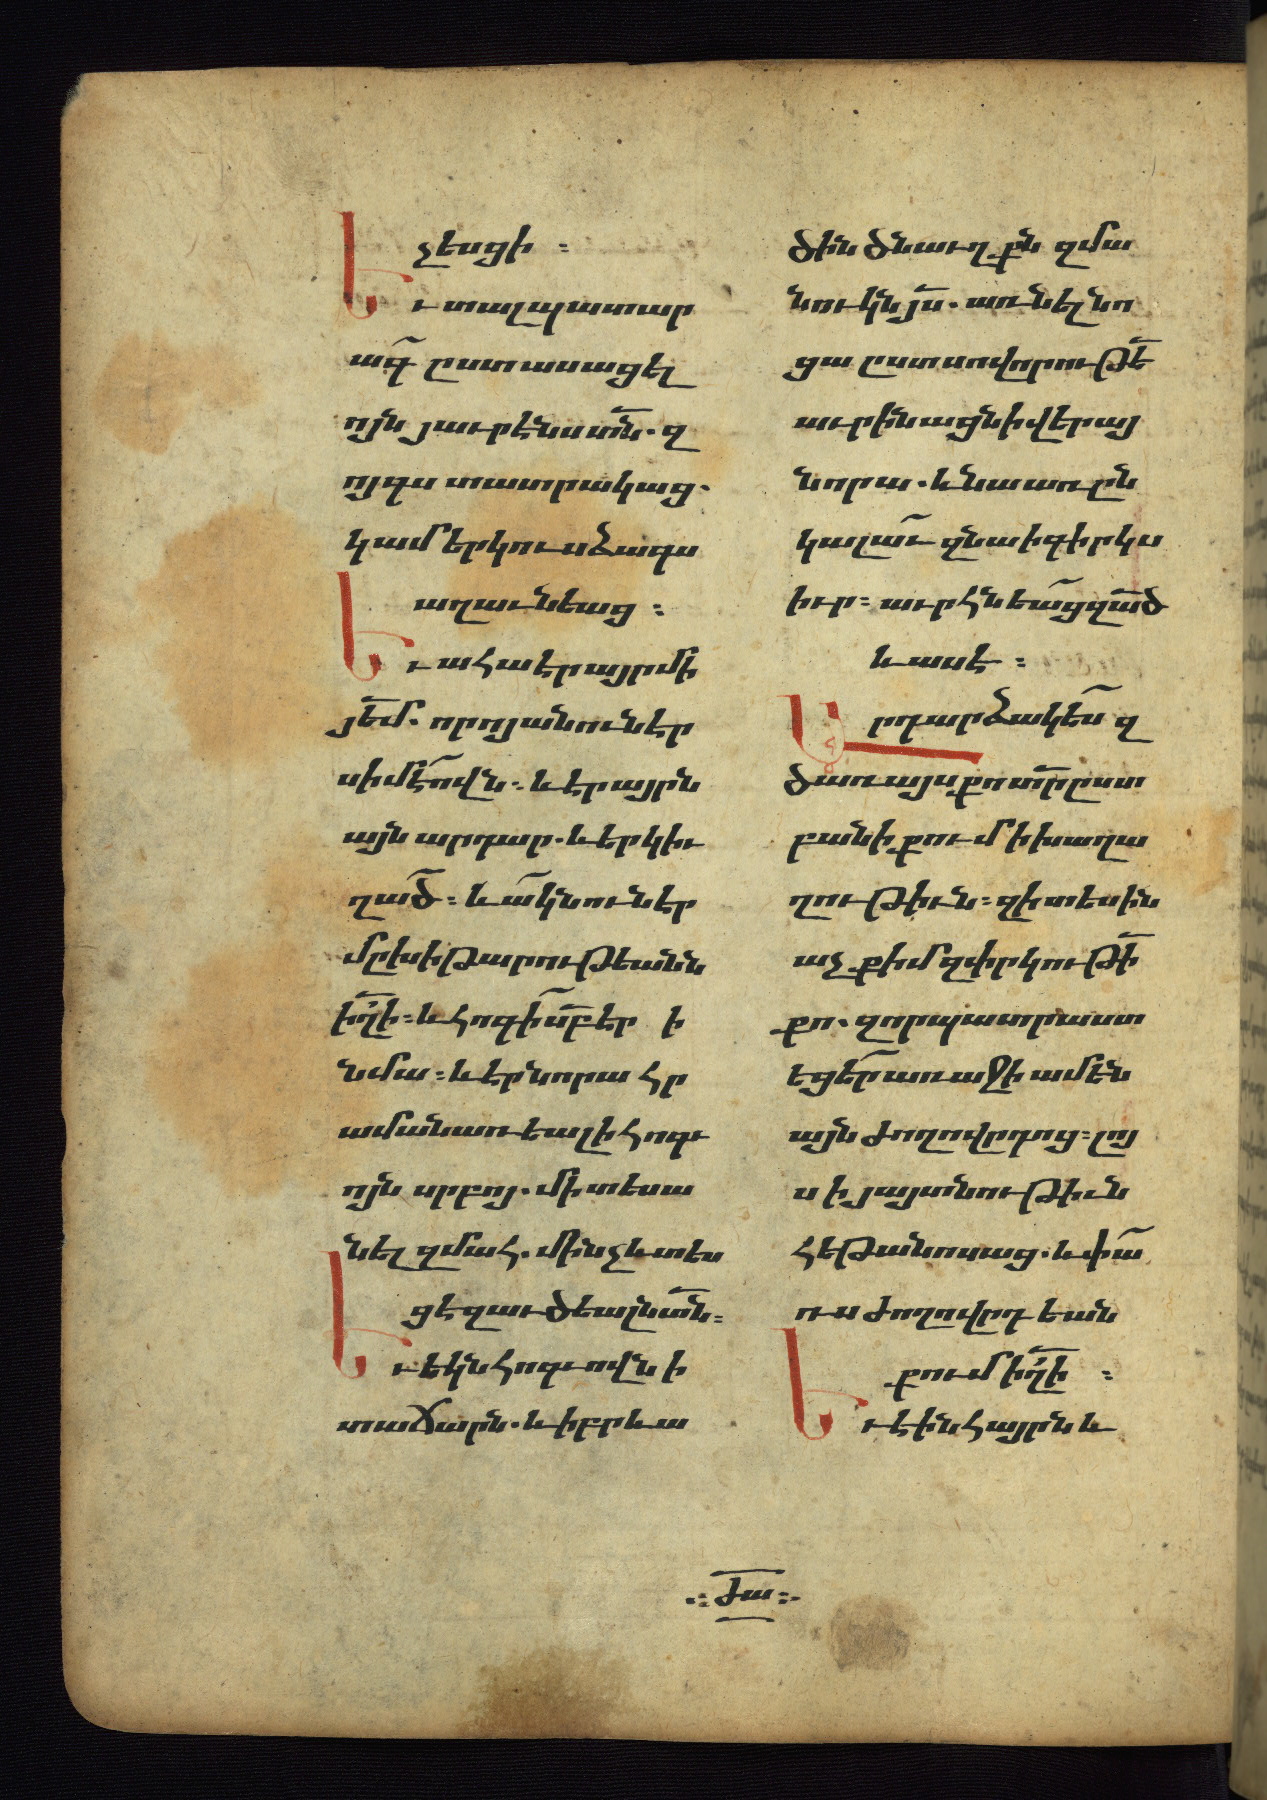 չեսցի ։
Եւ տալ պատար
ագ̃ ըստ ասացել
ոյն յաւրէնս տն̃. զ
ոյգս տատրակաց.
կամ երկուս ձագս
աղաւնեաց ։
Եւ ահա էր այր մի
յե̃մ. որոյ անուն էր
սիմէո̃վն. և էր այրն
այն արդար. և երկիւ
ղած̃ ։ և ա̃կն ուներ
մըխիթարութեանն
ի̃զլի ։ և հոգի̃ սբ̃ էր ի
նմա ։ և էր նորա հր
ամանառեալ ի հոգւ
ոյն սրբոյ. մի տեսա
նել զմահ. մինչև տես
ցէ զաւծեալն տն̃ ։
Եւ եկն հոգւովն ի
տաճարն. և իբրև ա
ծին ծնաւղքն զմա
նուկն յս̃. առնել նո
ցա ըստ սովորութե̃
աւրինացն ի վերայ
նորա. և նա առ ըն
կալա̃ւ զնա ի գիրկս
իւր ։ աւրհնեա̃ց զա̃ծ
և ասէ ։
Արդ արձակես̃ զ
ծառայս քո տր̃ ըստ
բանի քում ի խաղա
ղութիւն ։ զի տեսին
աչք իմ զփրկութի̃
քո. զոր պատրաստ
եցեր̃ առաջի ամեն
այն ժողովրդոց ։ լոյ
ս ի յայտնութիւն
հեթանոսաց. և փա̃
ռս ժողովրդեան
քում ի̃զլի ։
Եւ էին հայրն և
ժա